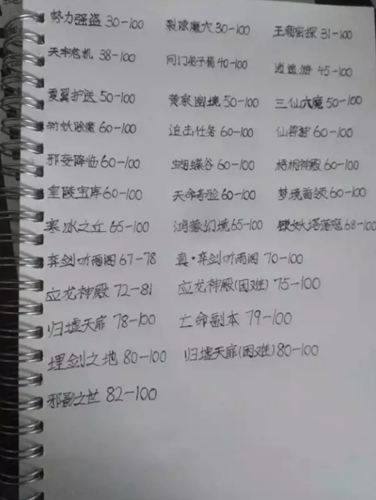 势力强盗 30-100 裂隙魔穴 30-100 王朝密探 31-100
天牢危机 38-100 同门老子葡 40-100 逍遥游 45-100
翼护送 50-100 黄泉幽境 50-100 三仙六魔 50-100
斩妖除魔 60-100 追击任务 60-100 仙兽谷 60-100
邪妄降临 60-100 蝴蝶谷 60-100 梧桐神殿 60-100
皇陵宝库 60-100 天命奇险 60-100 梦境首领 60-100
寒冰之丘 65-100 鸿蒙幻境 65-100 镇妖塔荡寇 68-100
弈剑听雨阁 67-78 真·弈剑听雨阁 70-100
应龙神殿 72-81 应龙神殿(困难) 75-100
归墟天扉 78-100 亡命副本 79-100
埋剑之地 80-100 归墟天扉(困难) 80-100
邪影之世 82-100